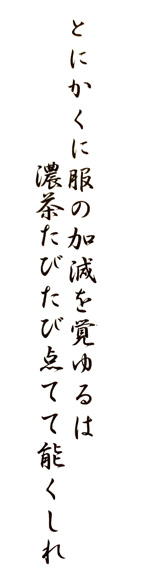 とにかくに服の加減を覚ゆるは
濃茶たびたび点てて能くしれ